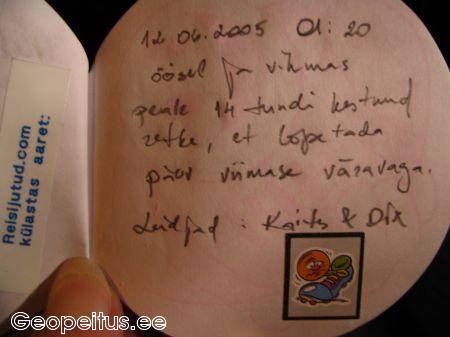 Reisijutud.com
külastas aaret:
12 06.2005 01:20
öösel ja vihmas
peale 14 tundi kestnud
retke, et lõpetada
päev viimase väravaga.
Leidjad : & Dix
Geopeitus.ee